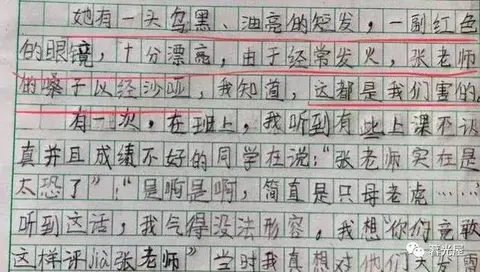 她有一头乌黑、油亮的短发，一副红色
的眼镜，十分漂亮，由于经常发火，张老师
的嗓子以经沙哑，我知道，这都是我们害的。
有一次，在班上，我听到有些上课不认
真并且成绩不好的同学在说：“张老师实在是
太恐了”；“是啊是啊，简直是只母老虎……
听到这话，我气得没法形容，我想“你们竟敢
这样评jià张老师”当时我真想对他们